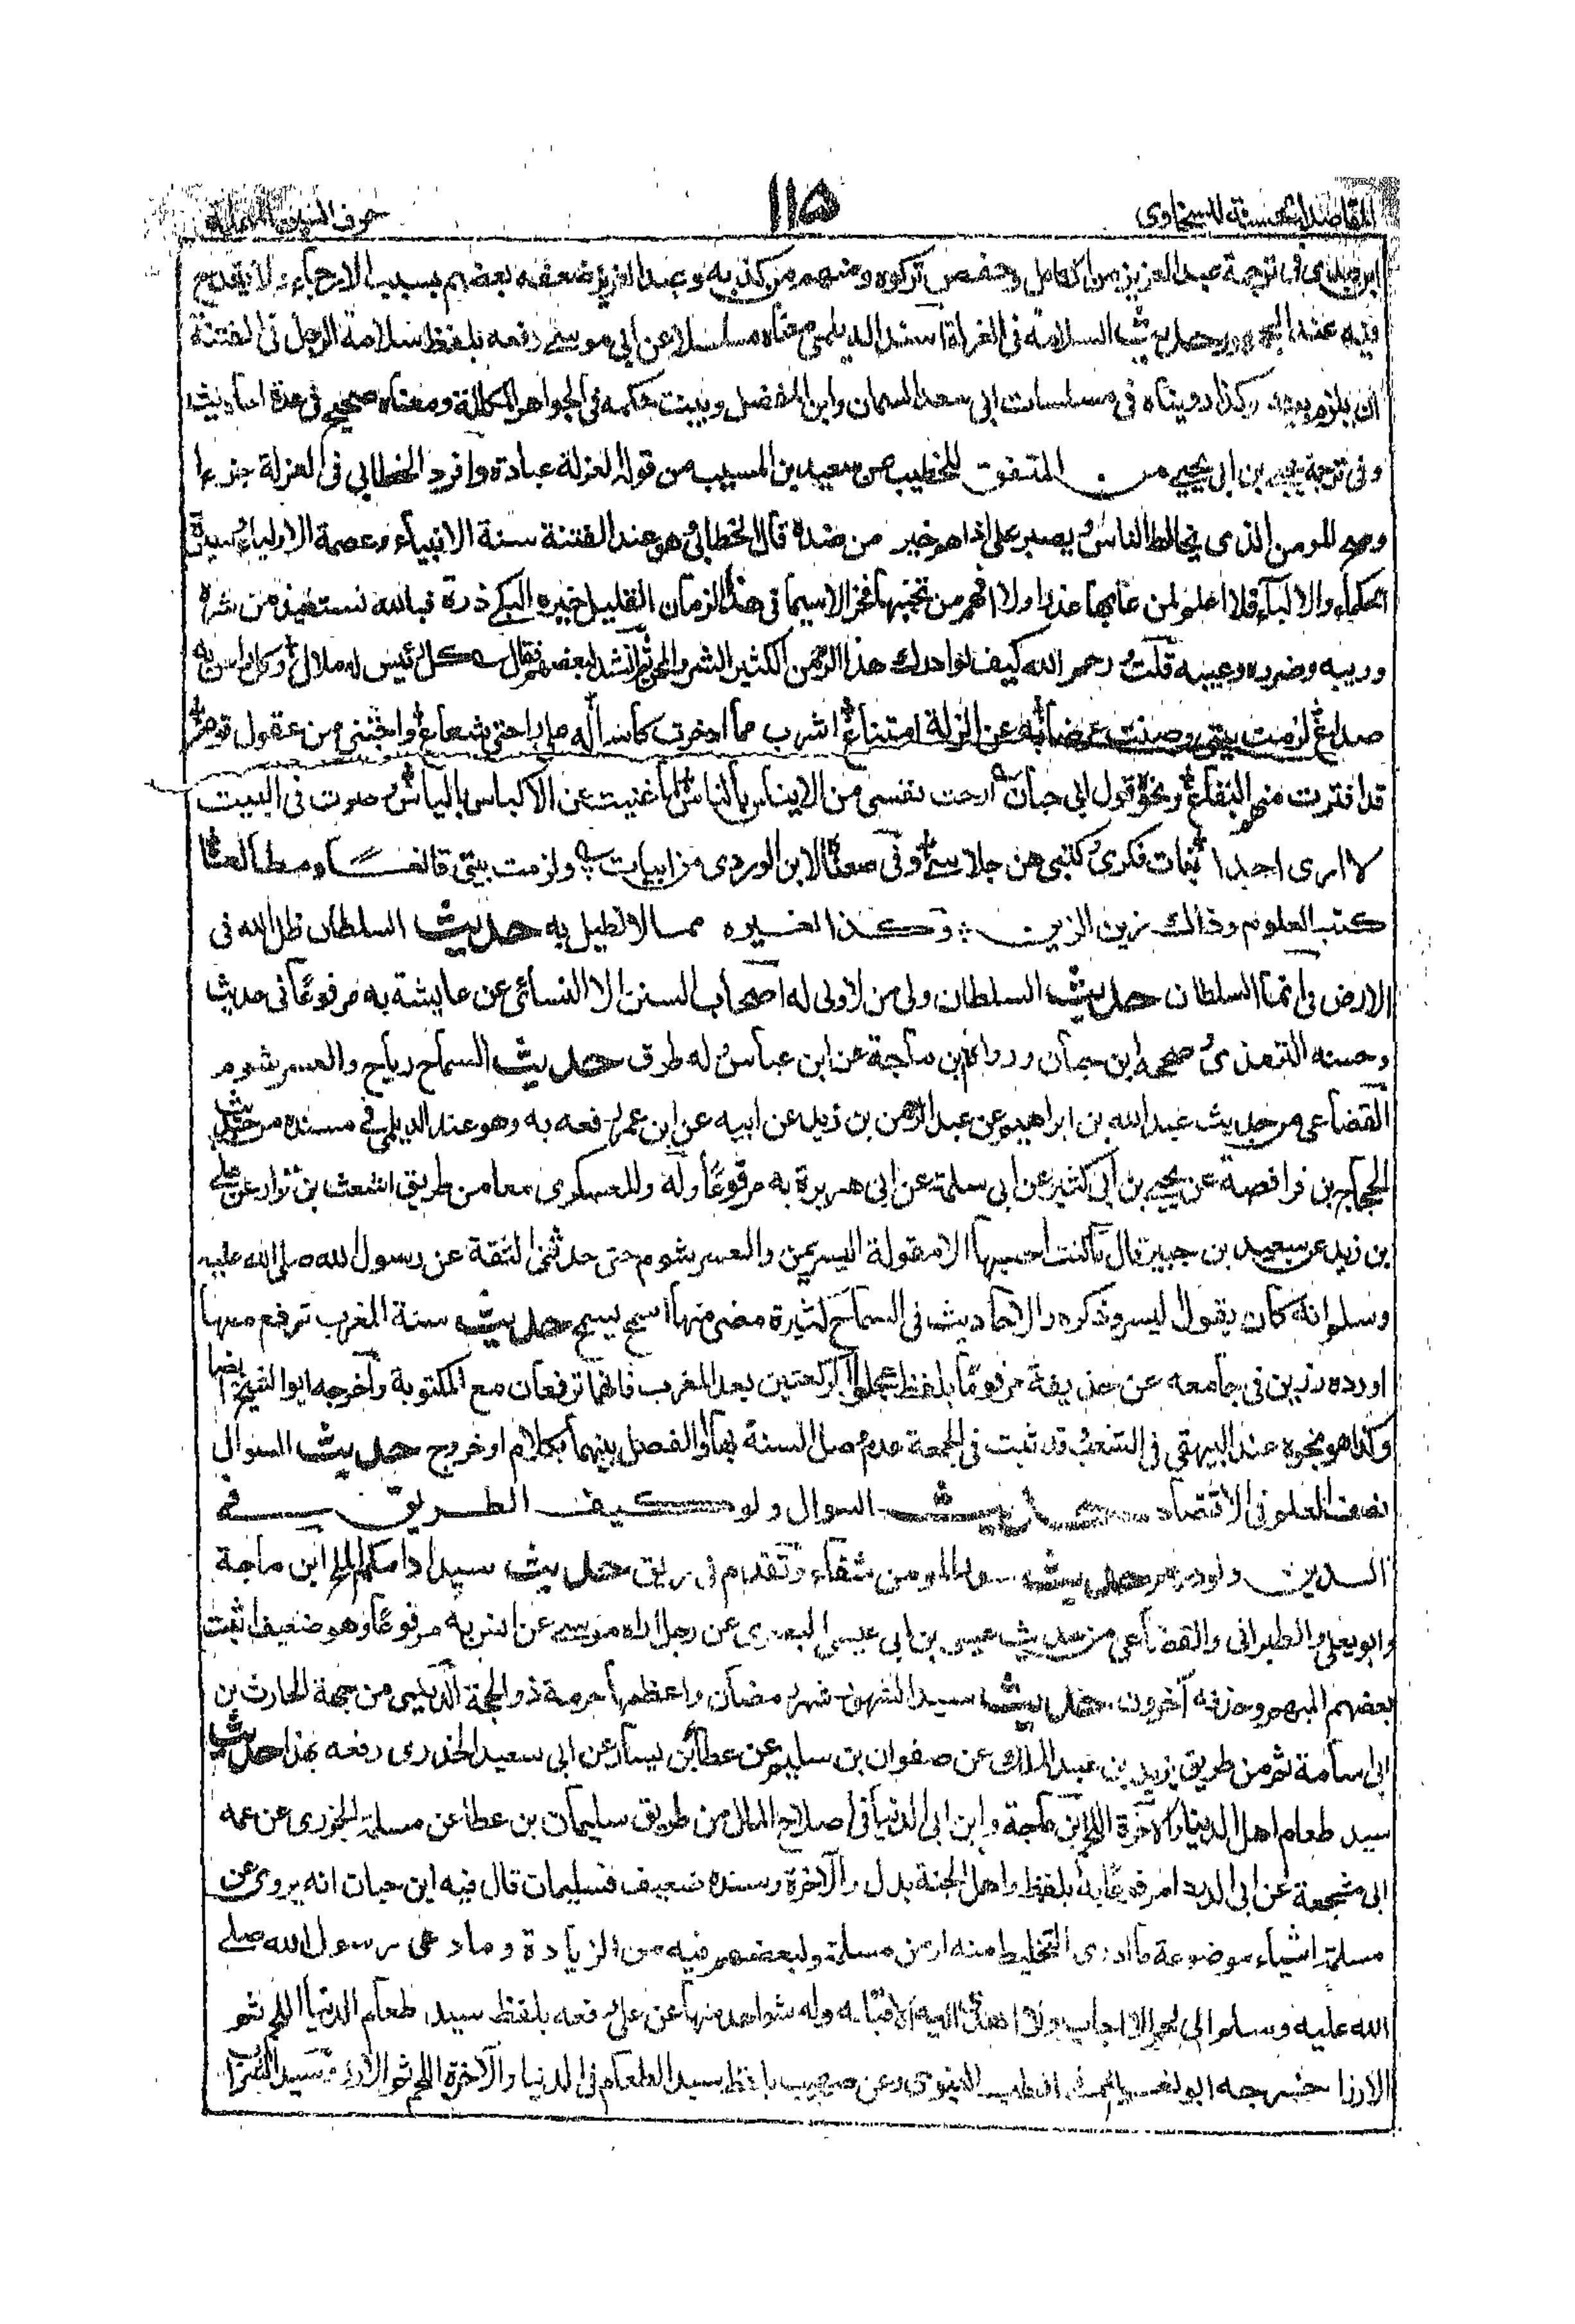 المقاصد الحسنة للسخاوى ١١٥ حرف السين المهملة
فى ترجمة عبد العزيز من الكامل وحفص تركوه ومنهم من كذبه وعبد العزيز ضعفه بعضهم بسبب الارجاء ولا يقدح
فيه عند الجمهور حديث السلامة فى العزلة اسند الديلمى معناه مسلسلا عن ابى موسى رفعه بلفظ سلامة الرجل فى الفتنة
ان يلزم بيته وكذا رويناه فى مسلسلات ابى سعد السمان وابن المفضل وبينت حكمه فى الجواهر المكللة ومعناه صحيح فى عدة احاديث
وفى ترجمة يحيى بن ابى يحيى من المتفق للخطيب عن سعيد بن المسيب من قوله العزلة عبادة وافرد الخطابى فى العزلة جزءا
وصح للمومن الذى يخالط الناس ويصبر على اذاهم خير من ضده قال الخطابى هو عند الفتنة سنة الانبياء وعصمة الاولياء وسيرة
الحكماء والالباء فلا اعلم لمن عابها عذرا ولا افهم من تجنبها فخرا لاسيما فى هذا الزمان القليل خيره البكى ذرة فبالله نستعيذ من شره
وريبه وضرره وعيبه قلت رحمه الله كيف لو ادرك هذا الزمن الكثير الشر والمحن ثم انشد لبعضهم فقال كل رئيس له ملال وكل راس به
صداع لزمت بيتى وصنت عرضا به عن الزلة امتناع اشرب مما ادخرت كأسا له على راحتى شعاع واجتنى من عقول قوم
قد اقفرت منهم البقاع ونحوه قول ابى حيان ارحت نفسى من الايناس بالناس لما غنيت عن الاكياس بالياس وصرت فى البيت
لا ارى احدا بنات فكرى وكتبى هن جلاسى وفى معناه لابن الوردى من ابيات ولزمت بيتى قانعا ومطالعا
كتب العلوم وذالك زين الزين وكذا لغيره مما لا نطيل به حديث السلطان ظل الله فى
الارض فى انما السلطان حديث السلطان ولى من لا ولى له اصحاب السنن الا النسائى عن عايشة به مرفوعا فى حديث
وحسنه الترمذى وصححه ابن حبان ورواه ابن ماجة عن ابن عباس وله طرق حديث السماح رباح والعسر شوم
القضاعى من حديث عبد الله بن ابراهيم عن عبد الرحمن بن زيد عن ابيه عن ابن عمر رفعه به وهو عند الديلمى فى مسنده من حديث
الحجاج بن فرافصة عن يحيى بن ابى كثير عن ابى سلمة عن ابى هريرة به مرفوعا وله وللعسكرى معا من طريق اشعث بن عن على
بن زيد عن سعيد بن جبير قال ما كنت احسبها الا مقولة اليسر يمن والعسر شوم حتى حدثنى الثقة عن رسول الله صلى الله عليه
وسلم انه كان يقول اليسر وذكره والاحاديث فى السماح كثيرة مضى منها اسمح يسمح حديث سنة المغرب ترفع معها
اورده رزين فى جامعه عن حذيفة مرفوعا بلفظ عجلوا الركعتين بعد المغرب فانهما ترفعان مع المكتوبة واخرجه ابو الشيخ ايضا
وكذا هو بنحوه عند البيهقى فى الشعب وقد ثبت فى الجمعة عدم وصل السنة بها والفصل بينهما بكلام او خروج حديث السوال
نصف العلم فى الاقتصاد حديث السوال ولو كيف الطريق فى
الدين ولو درهم حديث سور المومن شفاء وتقدم فى ريق حديث سيد ادامكم الملح ابن ماجة
وابو يعلى والطبرانى والقضاعى من حديث عيسى بن ابى عيسى البصرى عن رجل اراه موسى عن انس به مرفوعا وهو ضعيف اثبت
بعضهم المبهم وحذفه آخرون حديث سيد الشهور شهر رمضان واعظمها حرمة ذو الحجة الديلمى من جهة الحارث بن
ابى اسامة ثم من طريق يزيد بن عبد الملك عن صفوان بن سليم عن عطاء بن يسار عن ابى سعيد الخدرى رفعه بهذا حديث
سيد طعام اهل الدنيا والآخرة اللحم ابن ماجة وابن ابى الدنيا فى اصلاح المال من طريق سليمان بن عطا عن مسلمة الجزرى عن عمه
ابى مشجعة عن ابى الدرداء مرفوعا به بلفظ واهل الجنة بدل والآخرة وسنده ضعيف فسليمان قال فيه ابن حبان انه يروى عن
مسلمة اشياء موضوعة ما ادرى التخليط منه او من مسلمة ولبعضهم فيه من الزيادة وما دعى رسول الله صلى
الله عليه وسلم الى لحم الا اجاب ولا اهدى اليه الا قبله وله شواهد منها عن على رفعه بلفظ سيد طعام الدنيا اللحم ثم
الارز اخرجه ابو نعيم فى الطب النبوى وعن صهيب بلفظ سيد الطعام فى الدنيا والآخرة اللحم ثم الارز وسيد الشراب